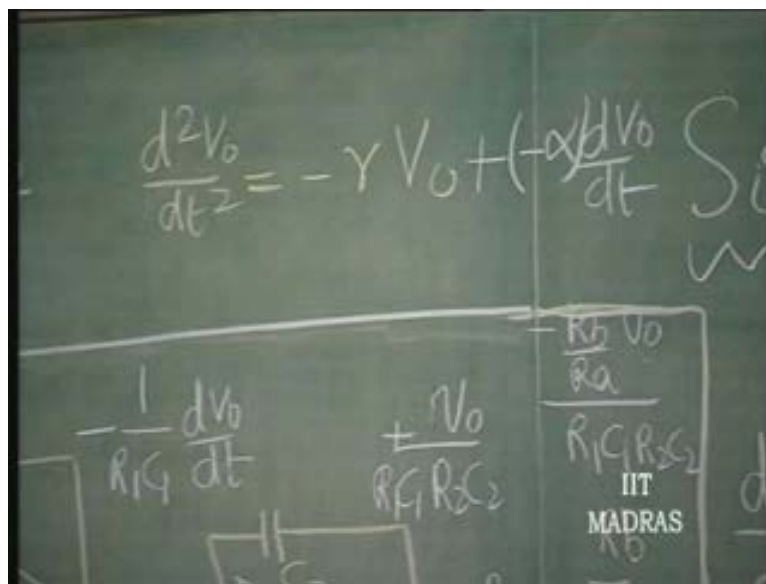 d²V₀/dt² = - γ V₀ + (-α) dV₀/dt
- 1/R₁C₁ dV₀/dt
+ V₀/RC₁R₂C₂
- Rb/Ra V₀ / R₁C₁R₂C₂
IIT
MADRAS
Rb
C₂